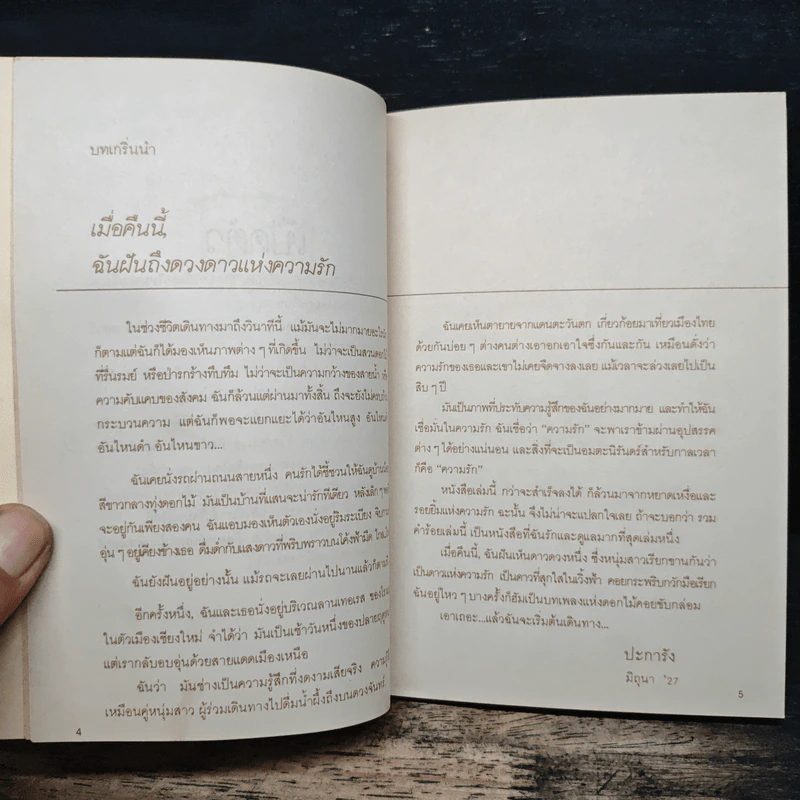 บทเกริ่นนำ
เมื่อคืนนี้,
ฉันฝันถึงดวงดาวแห่งความรัก
ในช่วงชีวิตเดินทางมาถึงวินาทีนี้ แม้มันจะไม่มากมายอะไร
ก็ตามแต่ฉันก็ได้มองเห็นภาพต่าง ๆ ที่เกิดขึ้น ไม่ว่าจะเป็นสวนดอกไม้
ที่รื่นรมย์ หรือป่ารกร้างทึบทึม ไม่ว่าจะเป็นความกว้างของสายน้ำ หรือ
ความคับแคบของสังคม ฉันก็ล้วนแต่ผ่านมาทั้งสิ้น ถึงจะยังไม่ครบถ้วน
กระบวนความ แต่ฉันก็พอจะแยกแยะได้ว่าอันไหนสูง อันไหน
อันไหนดำ อันไหนขาว...
ฉันเคยนั่งรถผ่านถนนสายหนึ่ง คนรักได้ชี้ชวนให้ฉันดูบ้าน
สีขาวกลางทุ่งดอกไม้ มันเป็นบ้านที่แสนจะน่ารักทีเดียว หลังเล็ก ๆ
จะอยู่กันเพียงสองคน ฉันแอบมองเห็นตัวเองนั่งอยู่ริมระเบียง จิบ
อุ่น ๆ อยู่เคียงข้างเธอ ดื่มด่ำกับแสงดาวที่พริบพราวบนโค้งฟ้ามืด
ฉันยังฝันอยู่อย่างนั้น แม้รถจะเลยผ่านไปนานแล้วก็ตาม
อีกครั้งหนึ่ง, ฉันและเธอนั่งอยู่บริเวณลานเทอเรส ของ
ในตัวเมืองเชียงใหม่ จำได้ว่า มันเป็นเช้าวันหนึ่งของปลาย
แต่เรากลับอบอุ่นด้วยสายแดดเมืองเหนือ
ฉันว่า มันช่างเป็นความรู้สึกที่งดงามเสียจริง ความ
เหมือนคู่หนุ่มสาว ผู้ร่วมเดินทางไปดื่มน้ำผึ้งถึงบนดวงจันทร์
4
ฉันเคยเห็นตายายจากแดนตะวันตก เกี่ยวก้อยมาเที่ยวเมืองไทย
ด้วยกันบ่อย ๆ ต่างคนต่างเอาอกเอาใจซึ่งกันและกัน เหมือนดั่งว่า
ความรักของเธอและเขาไม่เคยจืดจางลงเลย แม้เวลาจะล่วงเลยไปเป็น
สิบ ๆ ปี
มันเป็นภาพที่ประทับความรู้สึกของฉันอย่างมากมาย และทำให้ฉัน
เชื่อมั่นในความรัก ฉันเชื่อว่า "ความรัก" จะพาเราข้ามผ่านอุปสรรค
ต่าง ๆ ได้อย่างแน่นอน และสิ่งที่จะเป็นอมตะนิรันดร์สำหรับกาลเวลา
ก็คือ "ความรัก"
หนังสือเล่มนี้ กว่าจะสำเร็จลงได้ ก็ล้วนมาจากหยาดเหงื่อและ
รอยยิ้มแห่งความรัก ฉะนั้น จึงไม่น่าจะแปลกใจเลย ถ้าจะบอกว่า รวม
คำร้อยเล่มนี้ เป็นหนังสือที่ฉันรักและดูแลมากที่สุดเล่มหนึ่ง
เมื่อคืนนี้, ฉันฝันเห็นดาวดวงหนึ่ง ซึ่งหนุ่มสาวเรียกขานกันว่า
เป็นดาวแห่งความรัก เป็นดาวที่สุกใสในเวิ้งฟ้า คอยกระพริบกวักมือเรียก
ฉันอยู่ไหว ๆ บางครั้งก็ฮัมเป็นบทเพลงแห่งดอกไม้คอยขับกล่อม
เอาเถอะ...แล้วฉันจะเริ่มต้นเดินทาง...
ปะการัง
มิถุนา '27
5